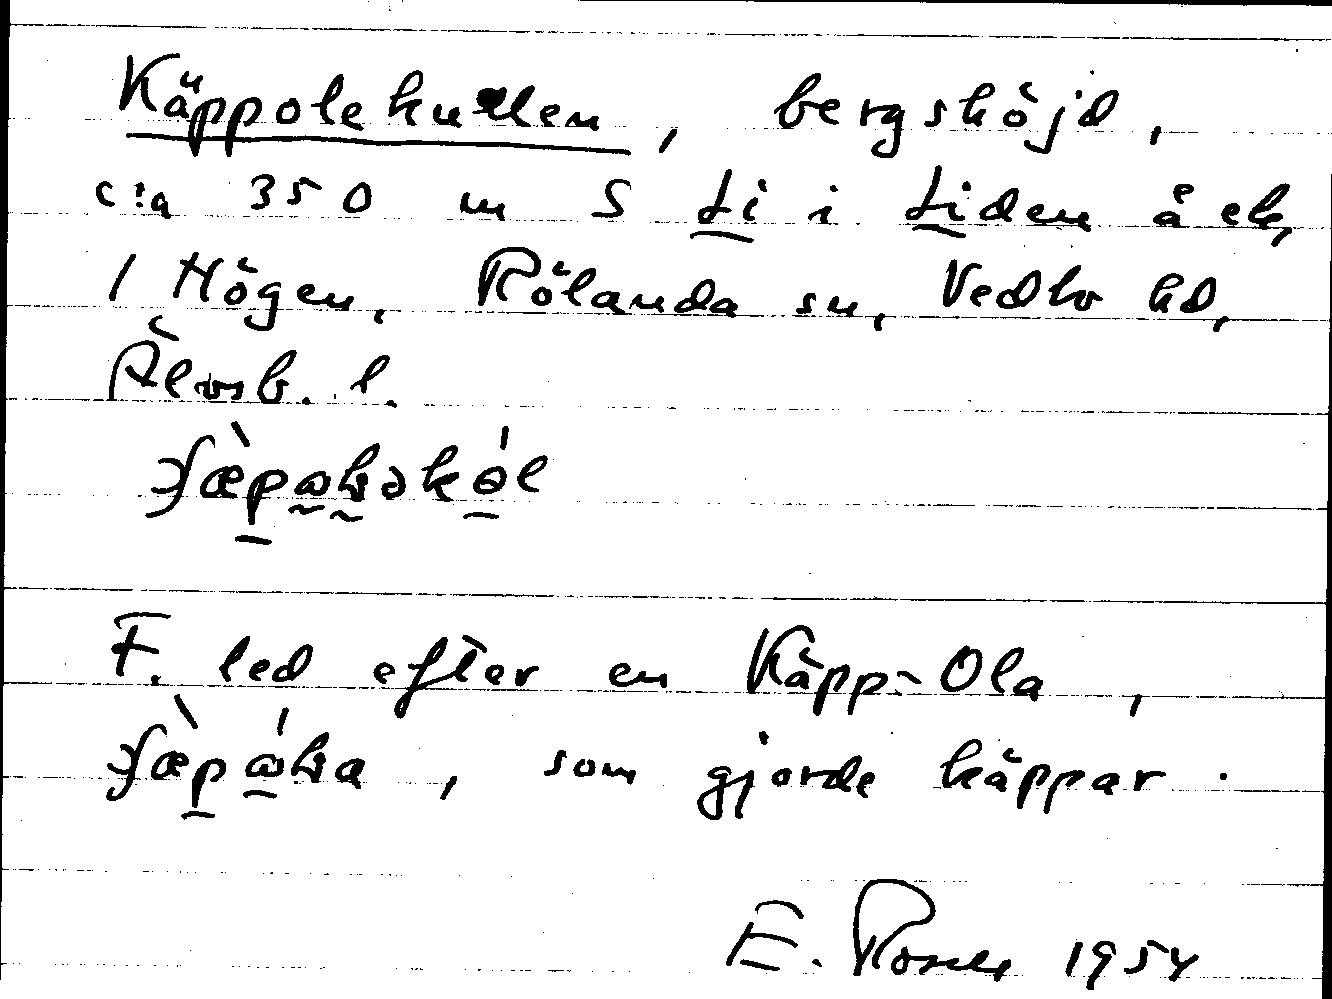 Käppolekullen, bergshöjd,
c:a 350 m S Li i Liden å ek,
1 Högen, Rölanda sn, Vedbo hd,
Älvsb. l.
F. led efter en Käpp-Ola,
, som gjorde käppar.
E. 1954